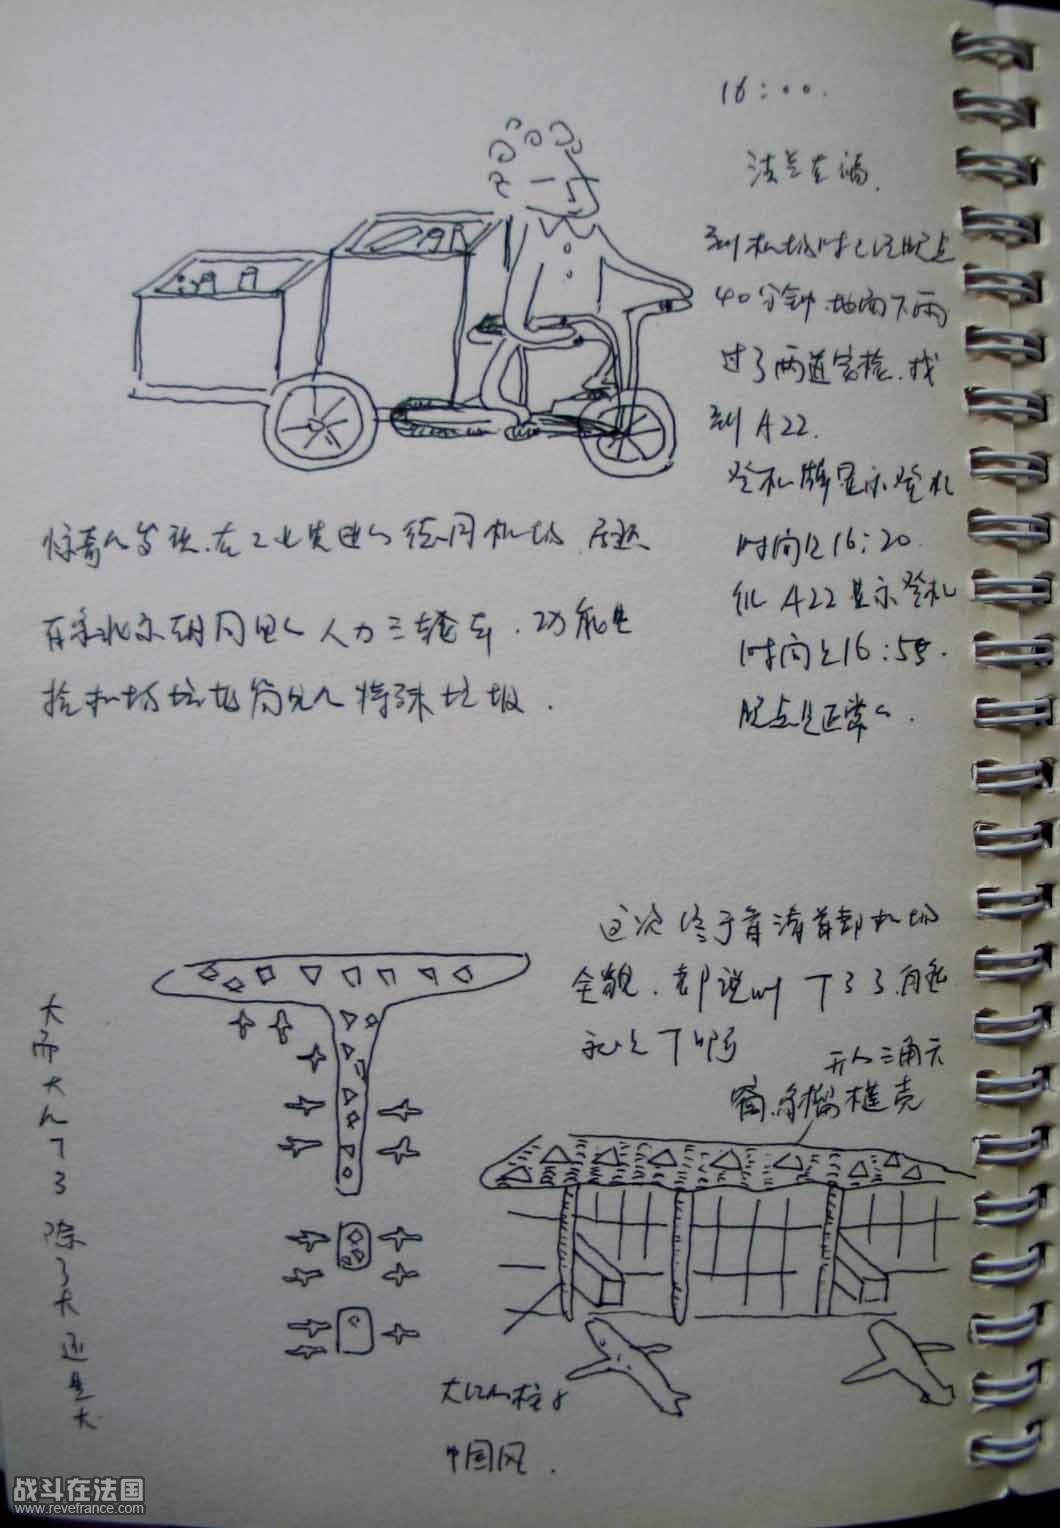 16:00.
法兰克福.
到机场时已经晚点
40分钟.地面下雨
过了两道安检.找
到A22.
登机牌显示登机
时间是16:20.
但A22显示登机
时间是16:55.
晚点是正常的.
惊奇的发现.在工业先进的德国机场.居然
有辆北京胡同里的人力三轮车.功能是
捡机场垃圾筒里的特殊垃圾.
这次终于看清首都机场
全貌.都说叫T3 3.
T
三角天
窗.
大而大的T3 除了大还是大
大红的柱子
中国风.
战斗在法国
www.revefrance.com